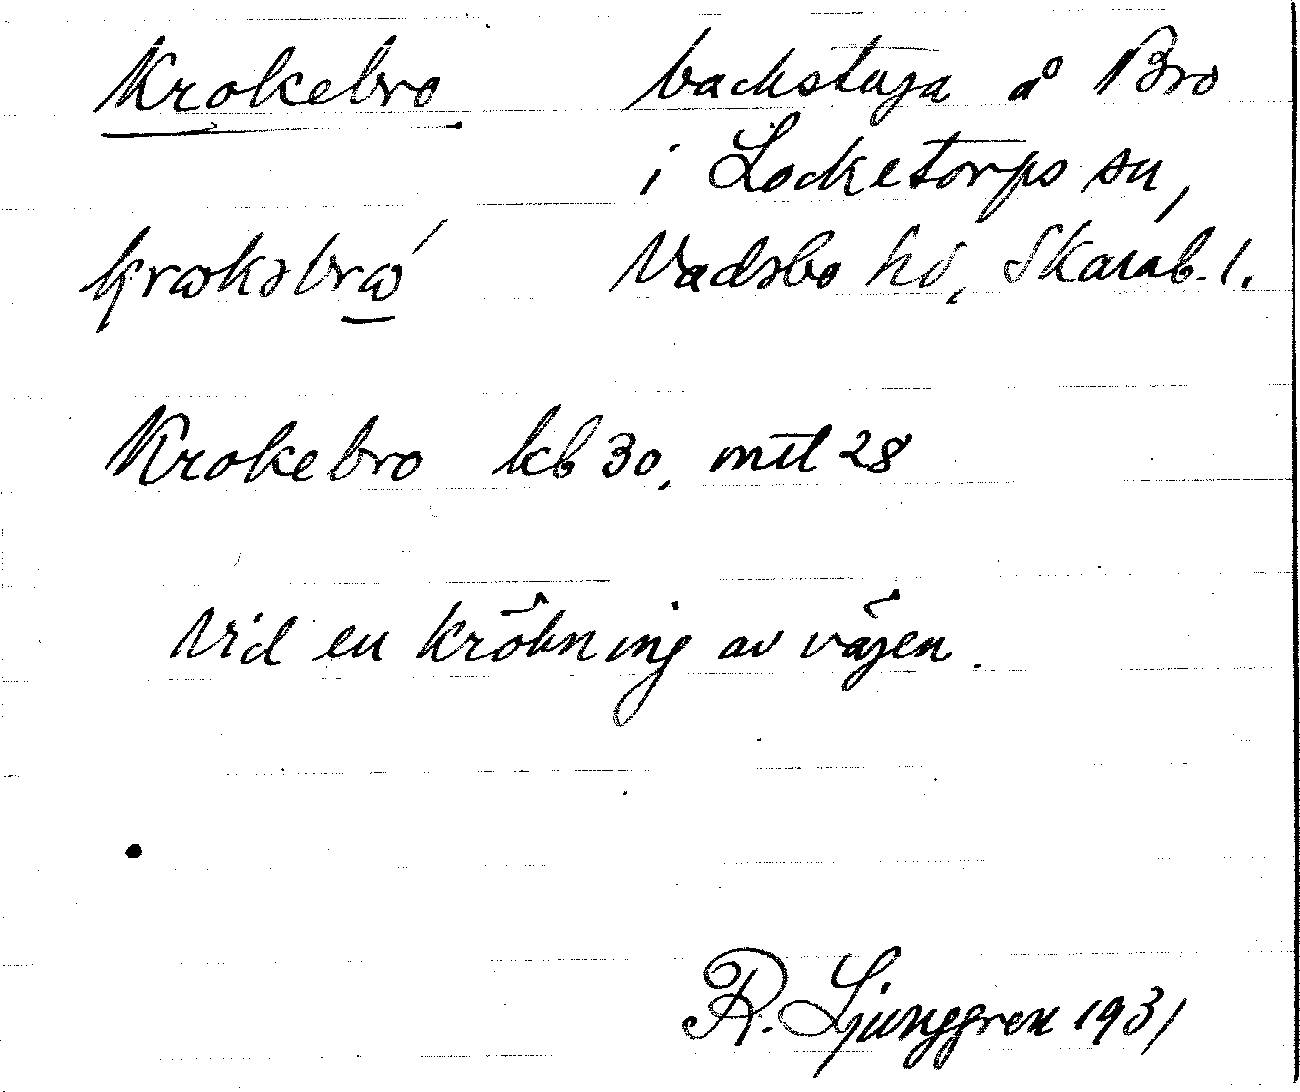 Krokebro backstuga å Bro
i Locketorps sn,
krokəbro´ Vadsbo hd, Skarab. l.
Krokebro kb 30, mtl 28
Vid en krökning av vägen.
R. Ljunggren 1931